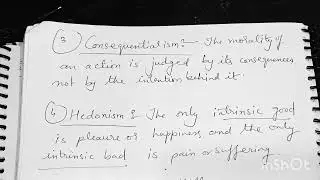 (3) Consequentialism :- The morality of
an action is judged by its consequences
not by the intention behind it.
(4) Hedonism :- The only intrinsic good
is pleasure or happiness, and the only
intrinsic bad is pain or suffering